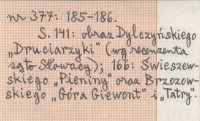 nr 377: 185-186.
S. 141: obraz Dylczyńskiego
„Druciarzyki” (wg recenzenta
są to Słowacy); 166: Świeszew-
skiego „Pieniny” oraz Brzozow-
skiego „Góra Giewont” i „Tatry”.